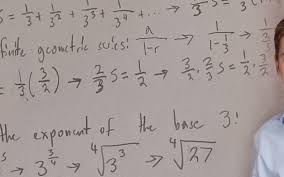 S = 1/3 + 1/3² + 1/3³ + 1/3⁴ + ... → 1/3 S =
finite geometric series: a/(1-r) → 1/(1-1/3) → 1/2
= 1/3 (3/2) → 2/3 S = 1/2 → 3/2 · 2/3 S = 1/2 · 3/2
the exponent of the base 3!
→ 3^(3/4) → ⁴√3³ → ⁴√27